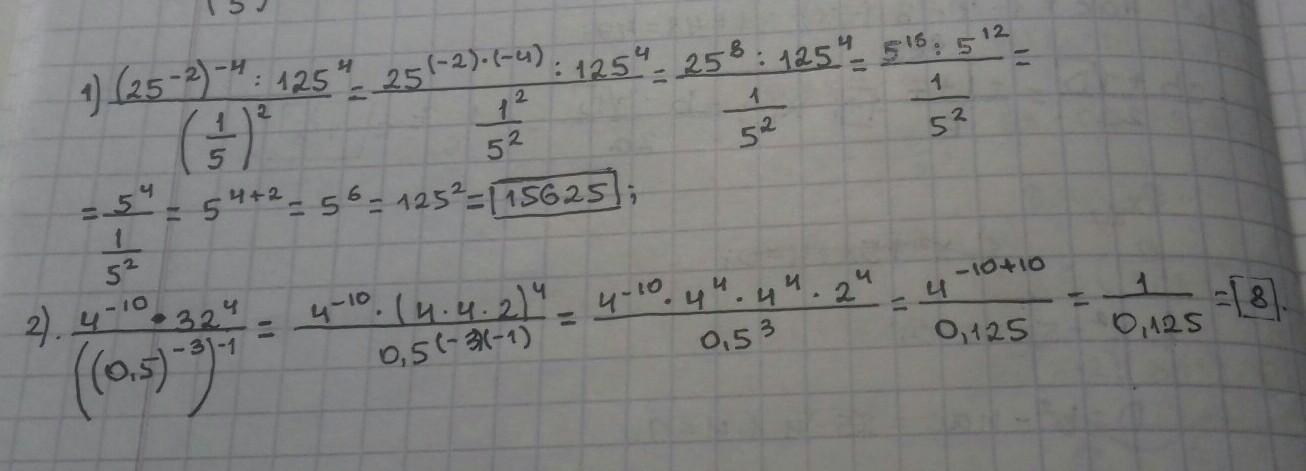 (5)
1) ((25^-2)^-4 : 125^4)/((1/5)^2) = (25^((-2)·(-4)) : 125^4)/(1^2/5^2) = (25^8 : 125^4)/(1/5^2) = (5^16 : 5^12)/(1/5^2) =
= 5^4/(1/5^2) = 5^(4+2) = 5^6 = 125^2 = 15625;
2). (4^-10 · 32^4)/(((0,5)^-3)^-1) = (4^-10 · (4·4·2)^4)/(0,5^((-3)(-1))) = (4^-10 · 4^4 · 4^4 · 2^4)/(0,5^3) = (4^(-10+10))/(0,125) = 1/(0,125) = 8.